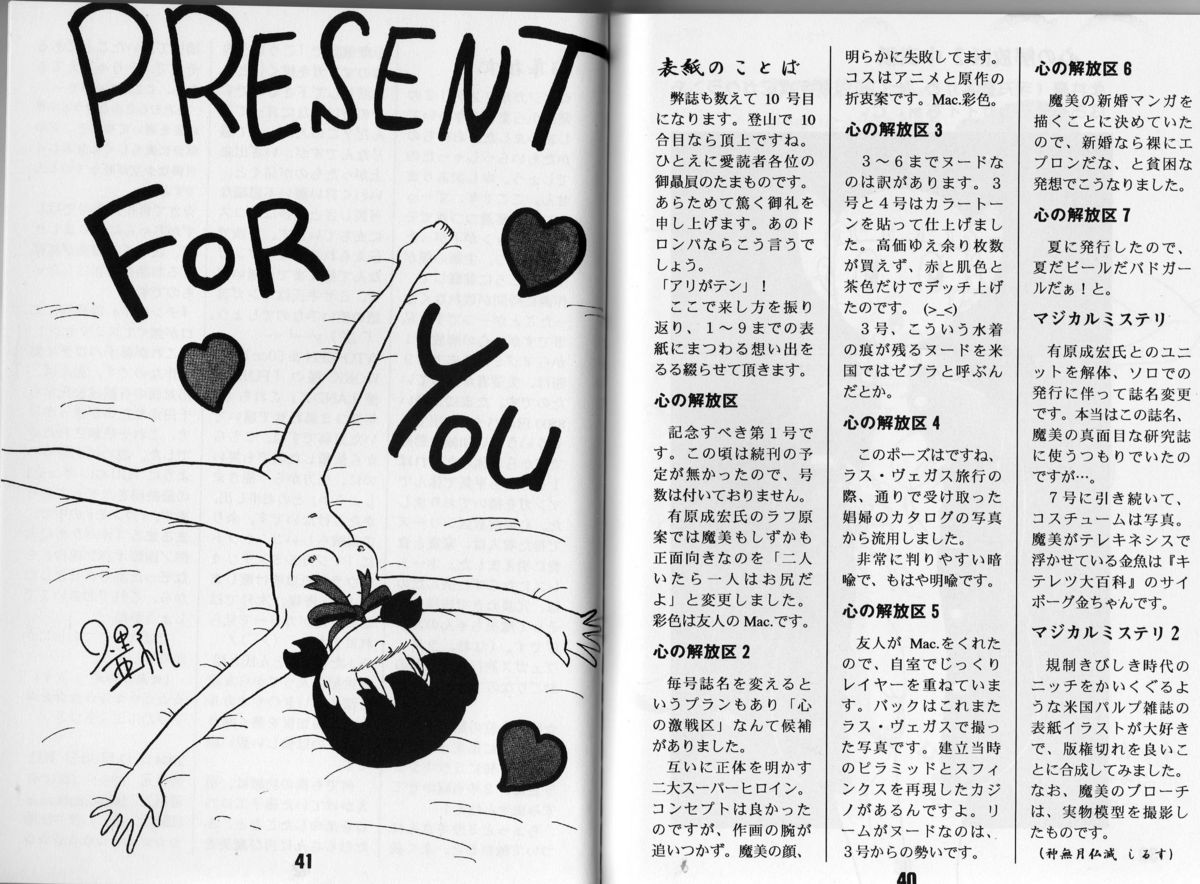 PRESENT
FOR
You
41
表紙のことば
弊誌も数えて 10 号目
になります。登山で 10
合目なら頂上ですね。
ひとえに愛読者各位の
御贔屓のたまものです。
あらためて篤く御礼を
申し上げます。あのド
ロンパならこう言うで
しょう。
「アリがテン」！
ここで来し方を振り
返り、1～9までの表
紙にまつわる想い出を
るる綴らせて頂きます。
心の解放区
記念すべき第１号で
す。この頃は続刊の予
定が無かったので、号
数は付いておりません。
有原成宏氏のラフ原
案では魔美もしずかも
正面向きなのを「二人
いたら一人はお尻だ
よ」と変更しました。
彩色は友人の Mac. です。
心の解放区 2
毎号誌名を変えると
いうプランもあり「心
の激戦区」なんて候補
がありました。
互いに正体を明かす
二大スーパーヒロイン。
コンセプトは良かった
のですが、作画の腕が
追いつかず。魔美の顔、
明らかに失敗してます。
コスはアニメと原作の
折衷案です。Mac.彩色。
心の解放区 3
３～６までヌードな
のは訳があります。３
号と４号はカラートー
ンを貼って仕上げまし
た。高価ゆえ余り枚数
が買えず、赤と肌色と
茶色だけでデッチ上げ
たのです。 (>_<)
３号、こういう水着
の痕が残るヌードを米
国ではゼブラと呼ぶん
だとか。
心の解放区 4
このポーズはですね、
ラス・ヴェガス旅行の
際、通りで受け取った
娼婦のカタログの写真
から流用しました。
非常に判りやすい暗
喩で、もはや明喩です。
心の解放区 5
友人が Mac.をくれた
ので、自室でじっくり
レイヤーを重ねていま
す。バックはこれまた
ラス・ヴェガスで撮っ
た写真です。建立当時
のピラミッドとスフィ
ンクスを再現したカジ
ノがあるんですよ。リ
ームがヌードなのは、
３号からの勢いです。
心の解放区 6
魔美の新婚マンガを
描くことに決めていた
ので、新婚なら裸にエ
プロンだな、と貧困な
発想でこうなりました。
心の解放区 7
夏に発行したので、
夏だビールだバドガー
ルだぁ！と。
マジカルミステリ
有原成宏氏とのユニ
ットを解体、ソロでの
発行に伴って誌名変更
です。本当はこの誌名、
魔美の真面目な研究誌
に使うつもりでいたの
ですが…。
７号に引き続いて、
コスチュームは写真。
魔美がテレキネシスで
浮かせている金魚は『キ
テレツ大百科』のサイ
ボーグ金ちゃんです。
マジカルミステリ 2
規制きびしき時代の
ニッチをかいくぐるよ
うな米国パルプ雑誌の
表紙イラストが大好き
で、版権切れを良いこ
とに合成してみました。
なお、魔美のブローチ
は、実物模型を撮影し
たものです。
（神無月仏滅 しるす）
40